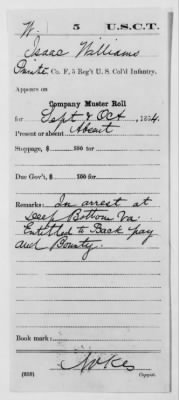 W. 5 U.S.C.T.
Isaac Williams
Private, Co. F, 5 Reg't U. S. Col'd Infantry.
Appears on
Company Muster Roll
for Sept & Oct, 1864.
Present or absent Absent
Stoppage, $ 100 for
Due Gov't, $ 100 for
Remarks: In arrest at
Deep Bottom Va.
Entitled to Back pay
and Bounty.
Book mark:
(858)
Copyist.